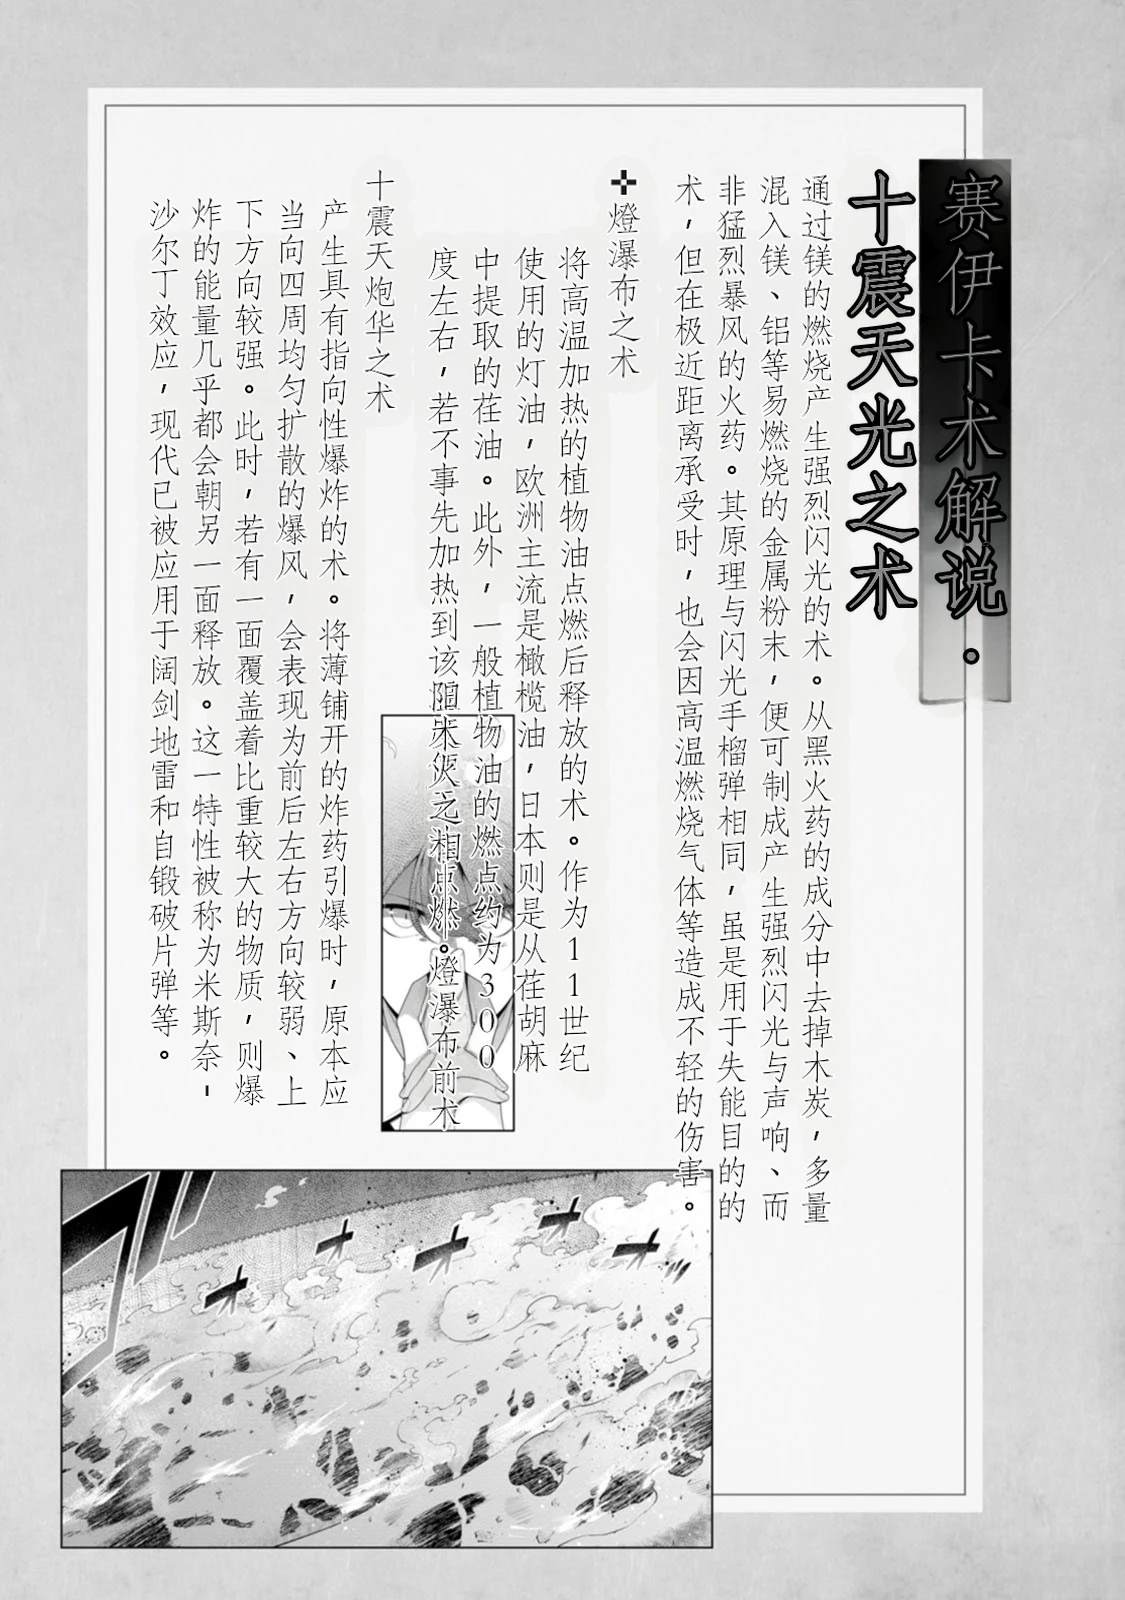 赛伊卡术解说·
十震天光之术
通过镁的燃烧产生强烈闪光的术。从黑火药的成分中去掉木炭,多量
混入镁、铝等易燃烧的金属粉末,便可制成产生强烈闪光与声响、而
非猛烈暴风的火药。其原理与闪光手榴弹相同,虽是用于失能目的的
术,但在极近距离承受时,也会因高温燃烧气体等造成不轻的伤害。
✜燈瀑布之术
将高温加热的植物油点燃后释放的术。作为11世纪
使用的灯油,欧洲主流是橄榄油,日本则是从荏胡麻
中提取的荏油。此外,一般植物油的燃点约为300
度左右,若不事先加热到该
点燃。燈瀑布前术
十震天炮华之术
产生具有指向性爆炸的术。将薄铺开的炸药引爆时,原本应
当向四周均匀扩散的爆风,会表现为前后左右方向较弱、上
下方向较强。此时,若有一面覆盖着比重较大的物质,则爆
炸的能量几乎都会朝另一面释放。这一特性被称为米斯奈-
沙尔丁效应,现代已被应用于阔剑地雷和自锻破片弹等。